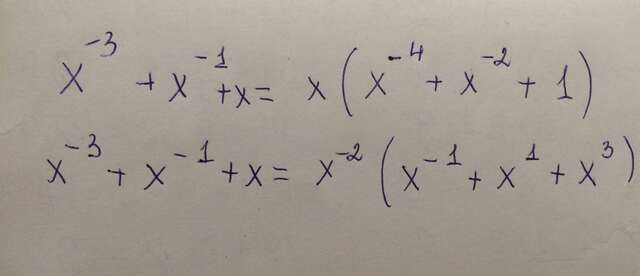 x⁻³ + x⁻¹ + x = x (x⁻⁴ + x⁻² + 1)
x⁻³ + x⁻¹ + x = x⁻² (x⁻¹ + x¹ + x³)